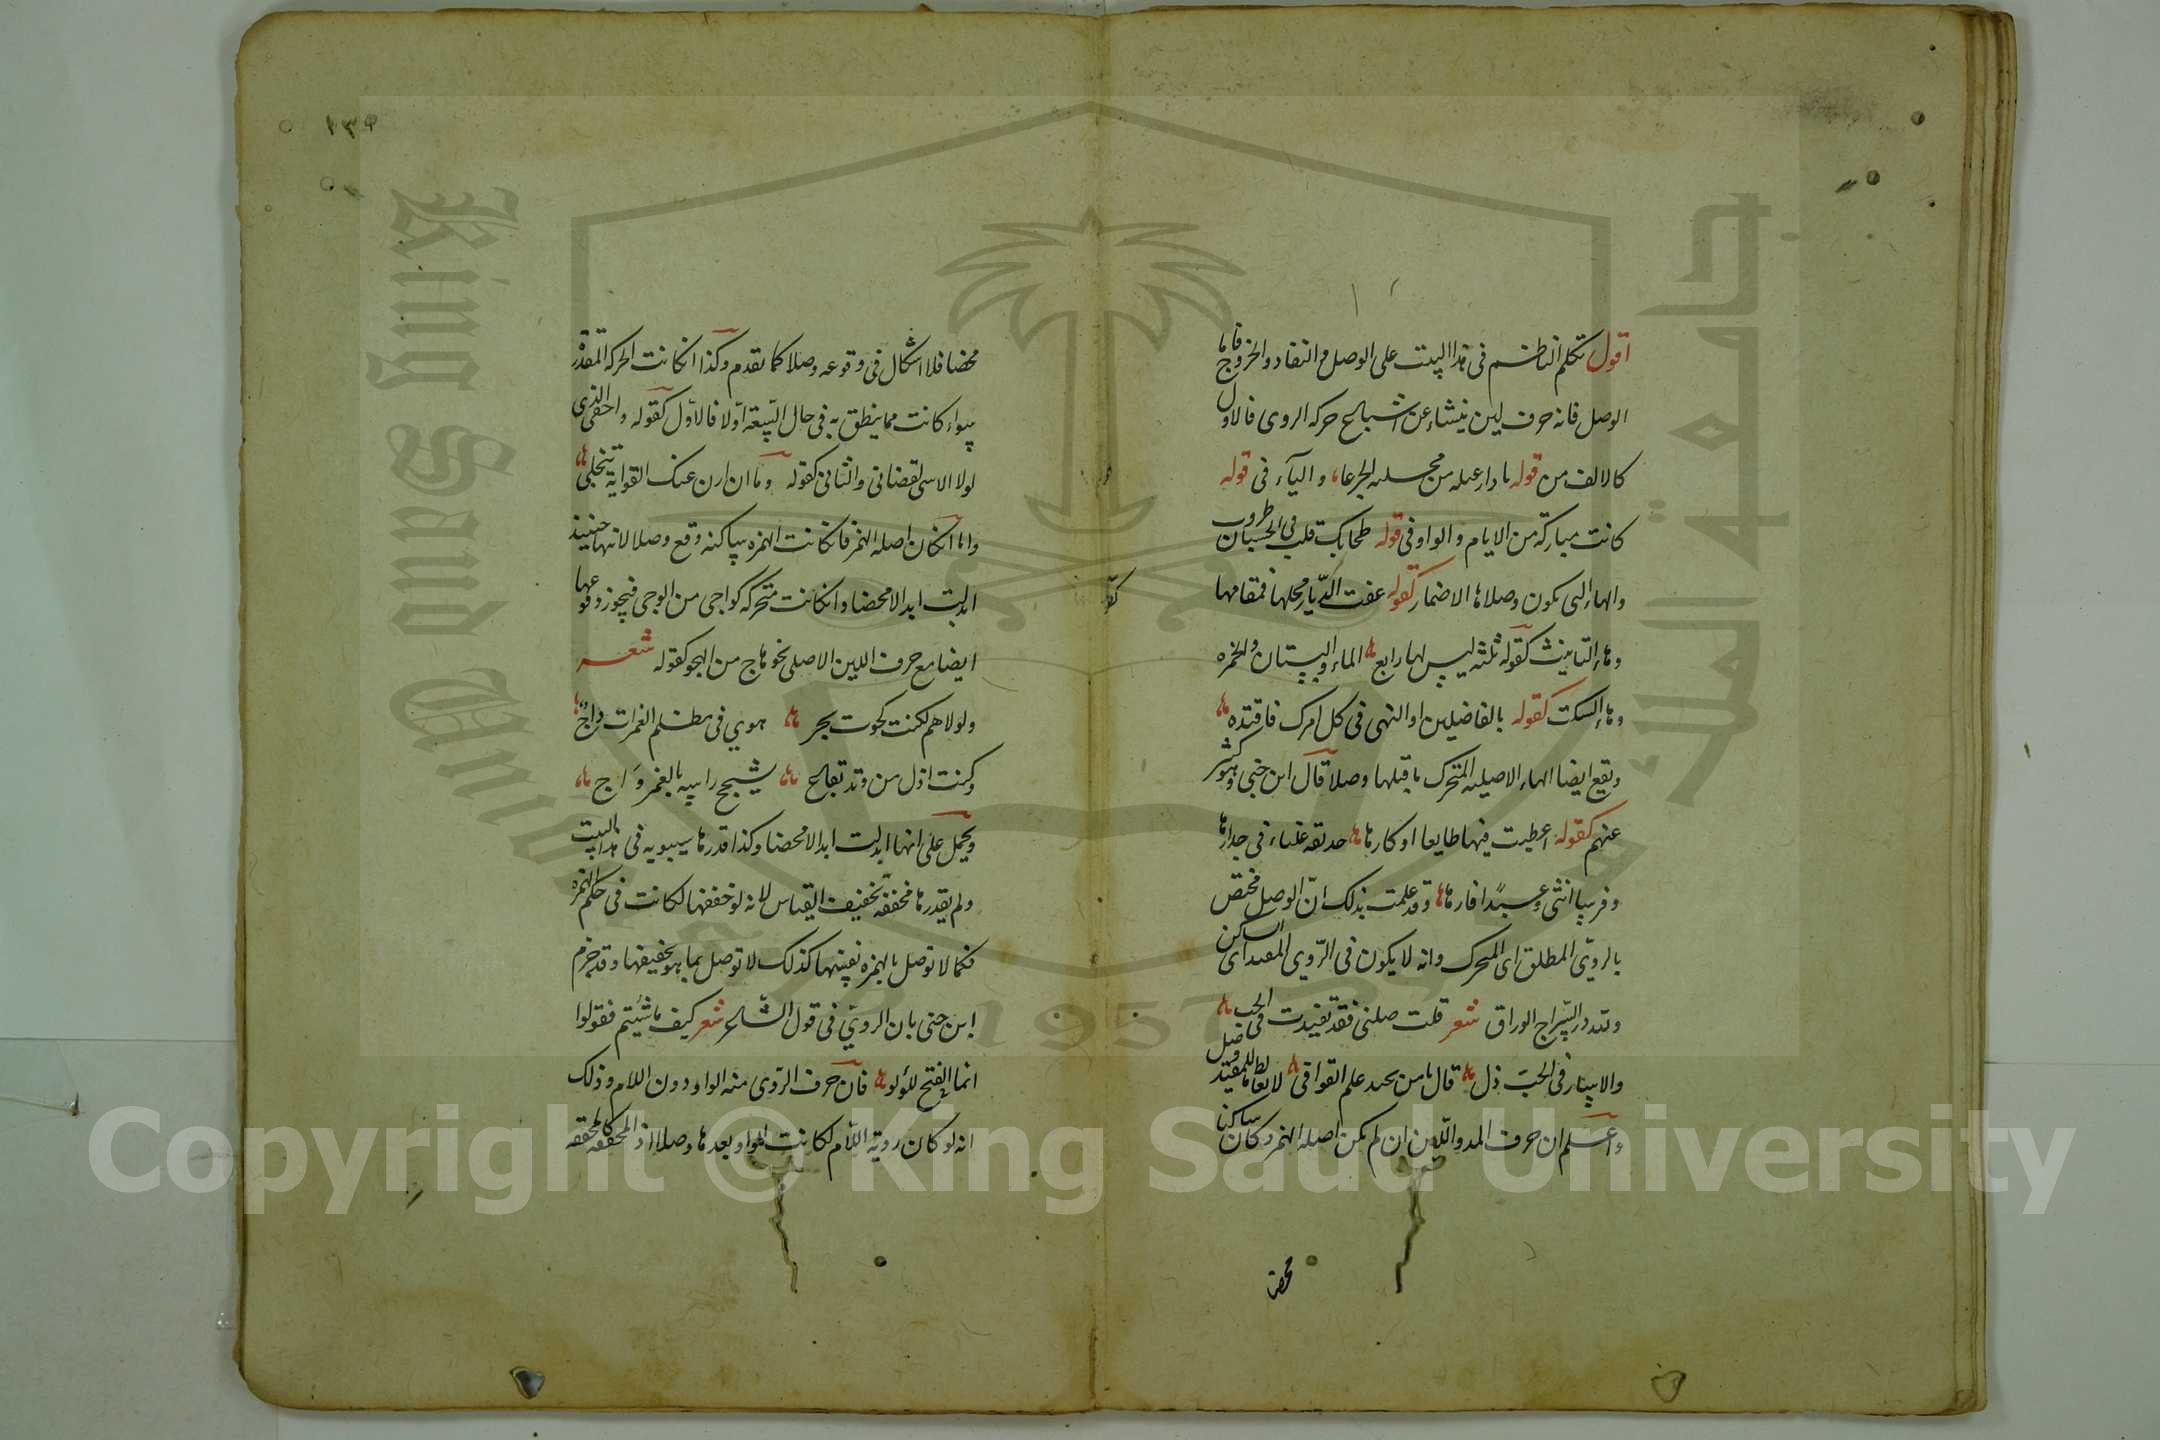 اقول تكلم الناظم فى هذا البيت على الوصل والنفاد والخروج فاما
الوصل فانه حرف لين ينشاء عن اشباع حركه الروى فالاول
كالالف من قوله يا دار عبله من محسله الجرعا، والياء فى قوله
كانت مباركة من الايام والواو فى قوله طحابك قلب فى الحسان طروب
والهاء التى تكون وصلا هاء الاضمار كقوله عفت الديار محلها فمقامها
وهاء التانيث كقوله ثلثه ليس لها رابع الماء والبستان والخمره
وهاء السكت كقوله بالفاضلين اولى النهى فى كل امرك فاقتده
وتقع ايضا الهاء الاصليه المتحرك ما قبلها وصلا قال ابن جنى وهو كثير
عنهم كقوله اعطيت فيها طايعا او كارها حديقه غلباء فى جدارها
وفرسا انثى وعبدا فارها وقد علمت بذلك ان الوصل مختص
بالروى المطلق اى المتحرك وانه لا يكون فى الروى المقيد اى الساكن
ولله در السراج الوراق شعر قلت صلنى فقد تقيدت فى الحب
والاسار فى الحب ذل قال يا من يجيد علم القوافى لا تغالط ما للمقيد وصل
واعلم ان حرف المد واللين ان لم يكن اصله الهمز وكان ساكنا
محضا
١٣٥
محضا فلا اشكال فى وقوعه وصلا كما تقدم وكذا ان كانت الحركه المقدر
سواء كانت مما ينطق به فى حال السعة اولا فالاول كقوله واخفى الذى
لولا الاسى لقضانى والثانى كقوله وما ان ارى عنك الغواية تنجلى
واما ان كان اصله الهمز فان كانت الهمزه ساكنه وقع وصلا لانها حينئذ
ابدلت ابدالا محضا وان كانت متحركه كواجى من الوجى فيجوز وقوعها
ايضا مع حرف اللين الاصلى نحو هاج من الهجو كقوله شعر
ولولاهم لكنت كحوت بحر هوى فى مظلم الغمرات داج
وكنت اذل من وتد بقاع يشجج راسه بالفهر واج
ويحمل على انها ابدلت ابدالا محضا وكذا قدرها سيبويه فى هذا البيت
ولم يقدرها مخففه تخفيف القياس لانه لو خففها لكانت فى حكم الهمزه
فكما لا توصل بالهمزه نفسها كذلك لا توصل بما هو تخفيفها وقد جزم
ابن جنى بان الروى فى قول الشاعر شعر كيف ما شئتم فقولوا
انما الفتح للولو فان حرف الروى منه الواو دون اللام وذلك
انه لو كان رويه اللام لكانت الواو بعدها وصلا اذ المخففه كالمحققه